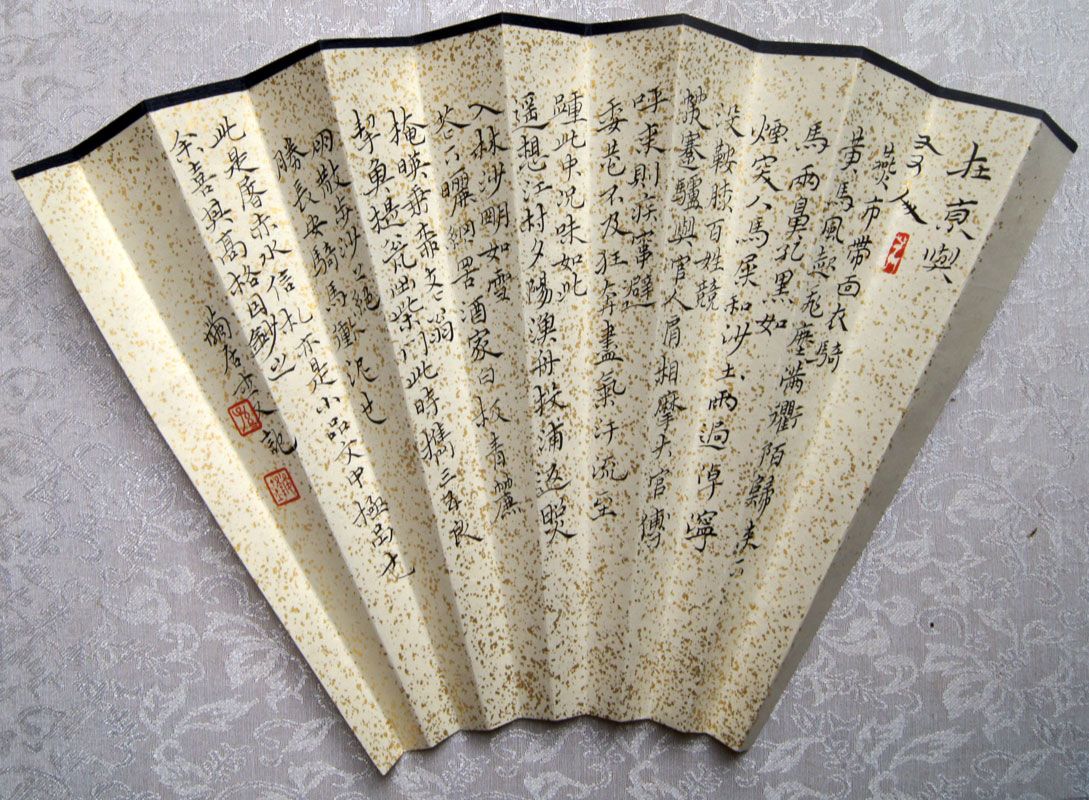 在京與
友人
燕市帶面衣騎
黃馬風起飛塵滿衢陌歸來下
馬兩鼻孔黑如
煙突人馬屎和沙土雨過淖濘
沒鞍膝百姓競
策蹇驢與官人肩相摩大官傳
呼來則疾竄避
委巷不及狂奔盡氣汗流至
踵此中況味如此
遙想江村夕陽漁舟投浦返照
入林沙明如雪
花下曬網罟酒家白板青帘
掩映垂柳老翁
挈魚提甕出柴門此時攜三五良
朋散步沙上絕
勝長安騎馬衝泥也
此是屠赤水信札亦是小品文中極品也
余喜其高格因鈔之
記